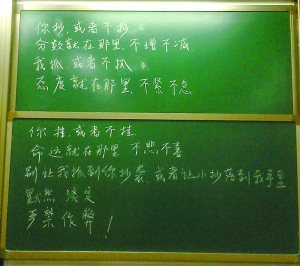 你抄,或者不抄
分数就在那里,不增不减
我抓,或者不抓
态度就在那里,不紧不急
你挂,或者不挂
命运就在那里 不悲,不喜
别让我抓到你抄袭,或者让小抄落到我手里
默然 淡定
严禁作弊!